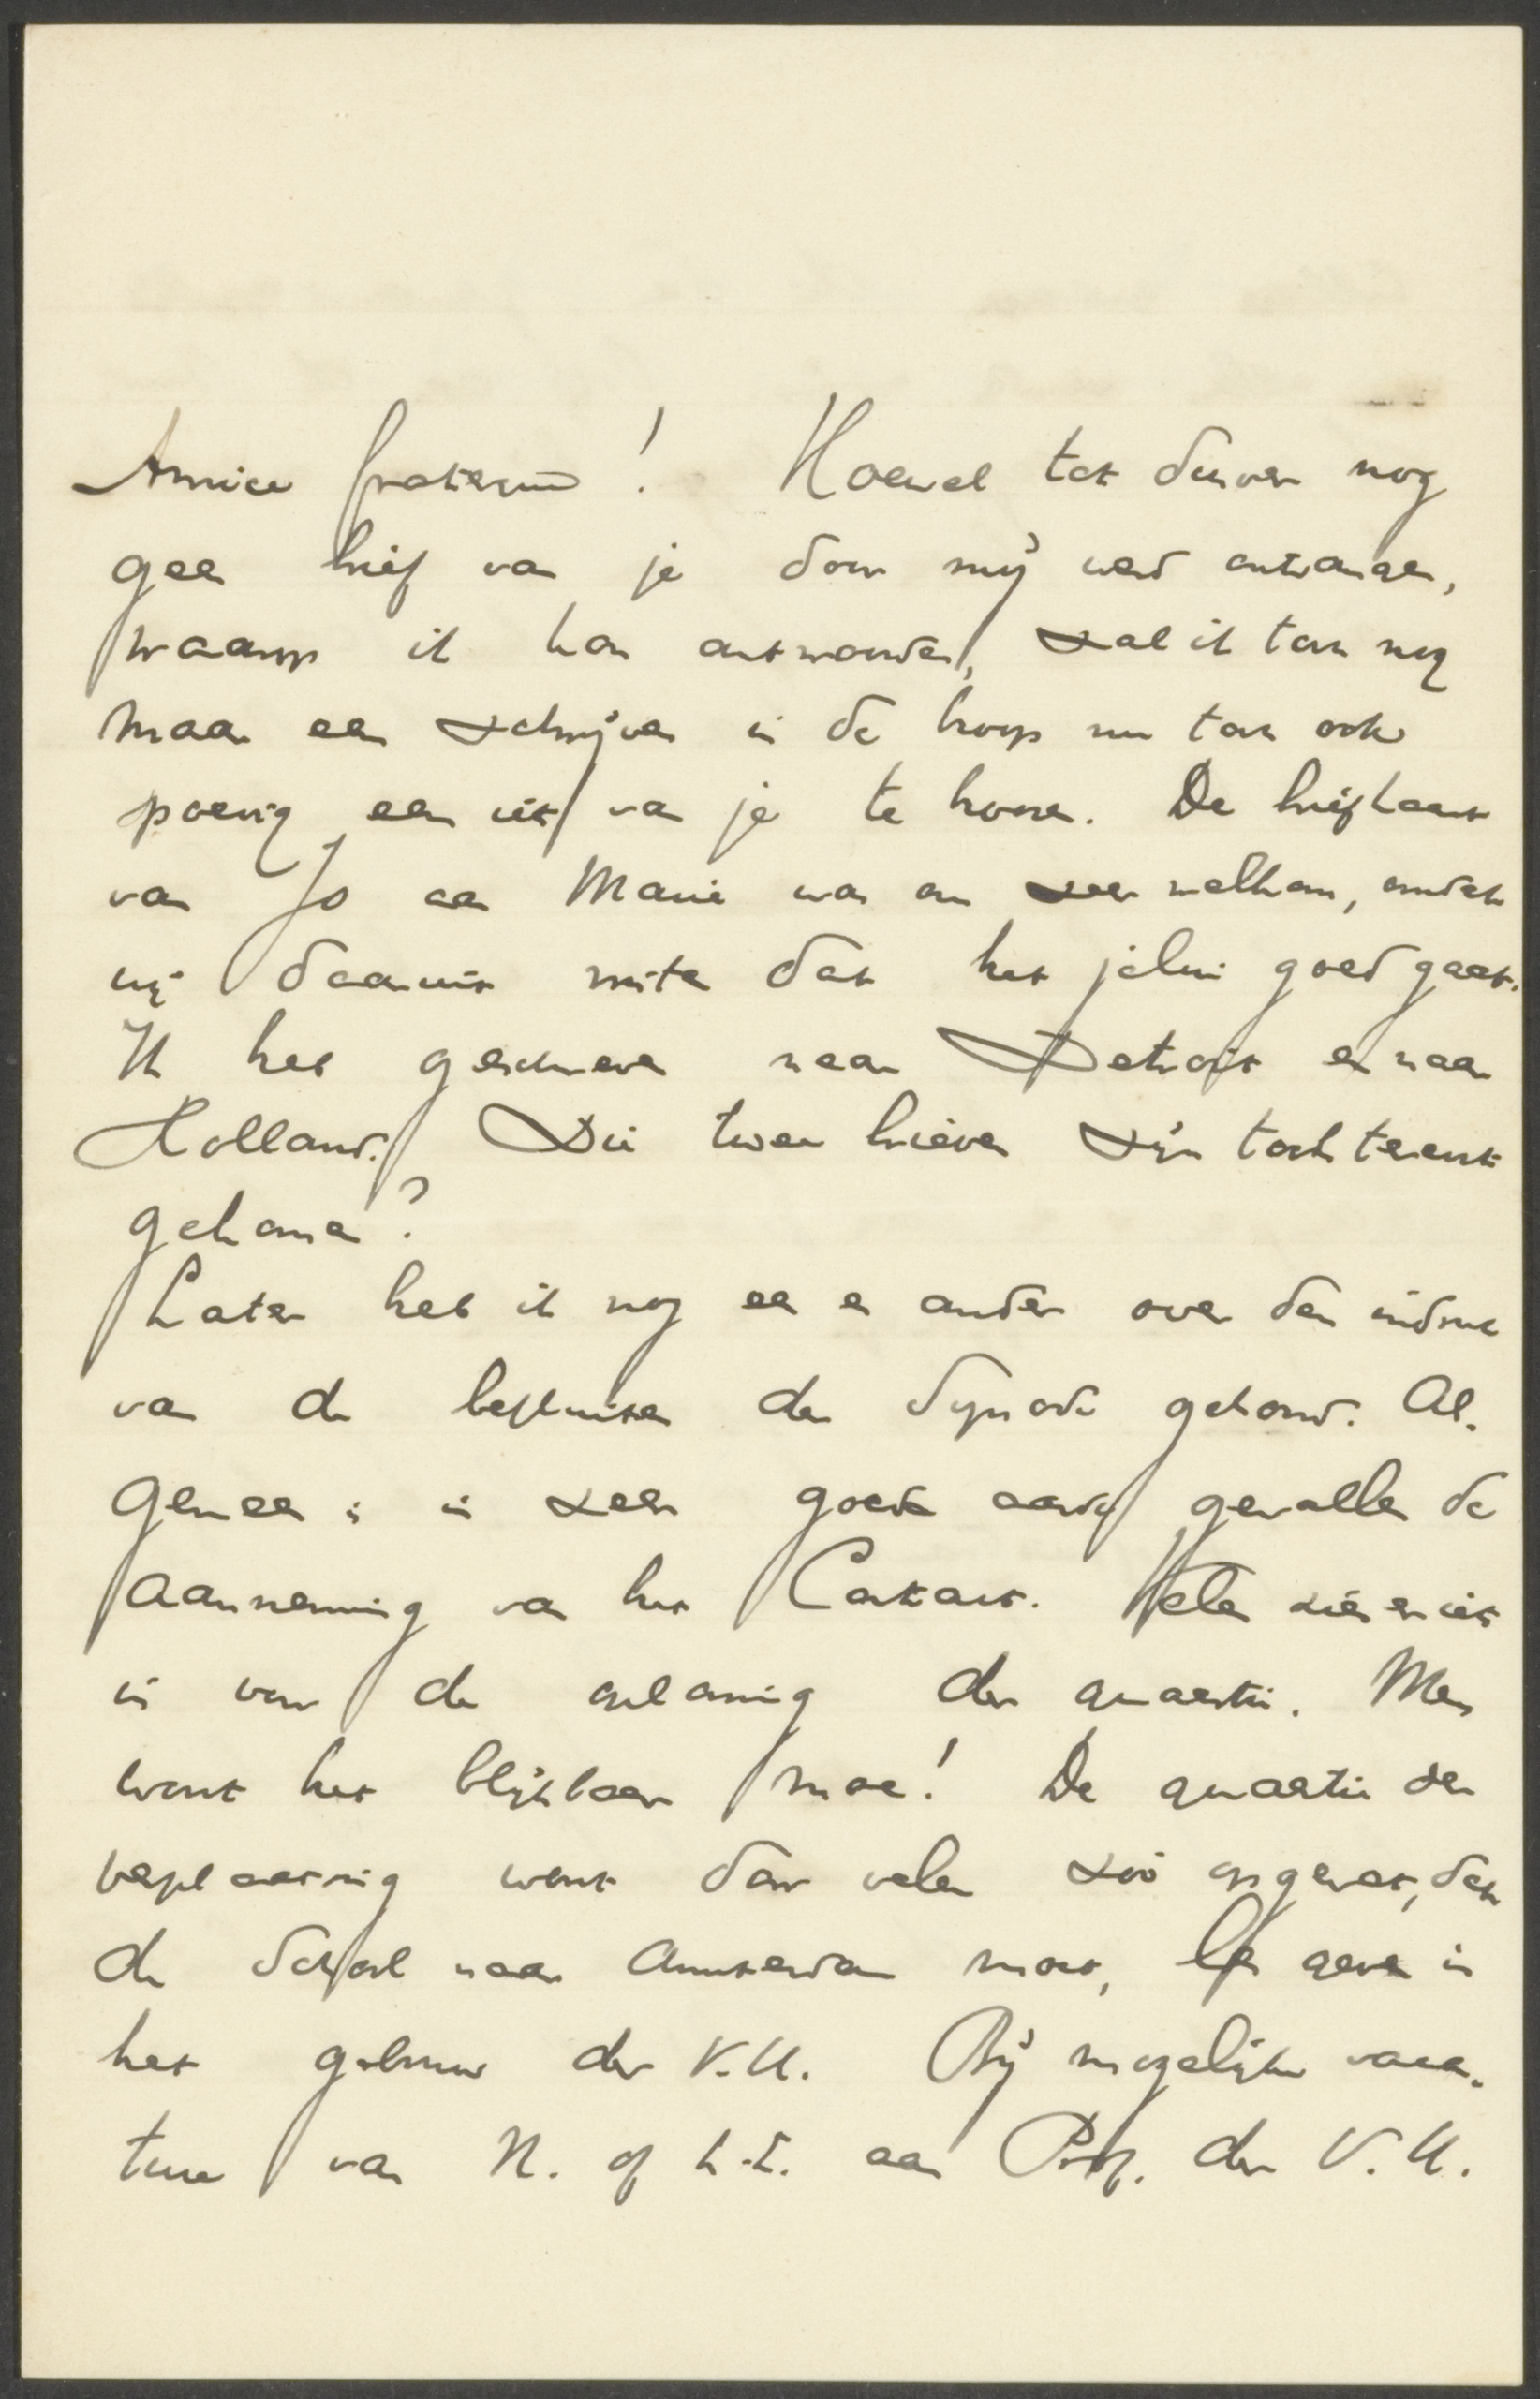 Amice frater! Hoewel tot dusver nog
geen brief van je door mij werd ontvangen,
waarop ik kon antwoorden, zal ik toch nog
maar een schrijven in de hoop nu toch ook
spoedig eens iets van je te hooren. De briefkaart
van Jo aan Marie was ons zeer welkom, omdat
wij daaruit wisten dat het jelui goed gaat.
Ik heb geschreven naar Detroit en naar
Holland. Die twee brieven zijn toch terecht
gekomen?
Later heb ik nog een en ander over den indruk
van de besluiten der Synode gehoord. Al-
gemeen is in zeer goede aarde gevallen de
aanneming van het Contract. Velen zien er iets
in voor de oplossing der quaestie. Men
wordt het blijkbaar moe! De quaestie der
verplaatsing wordt door velen zóó opgevat, dat
de School naar Amsterdam moet, les geven in
het gebouw der V.U. Bij mogelijke vaca-
ture van N. of L.L. aan Prof. der V.U.